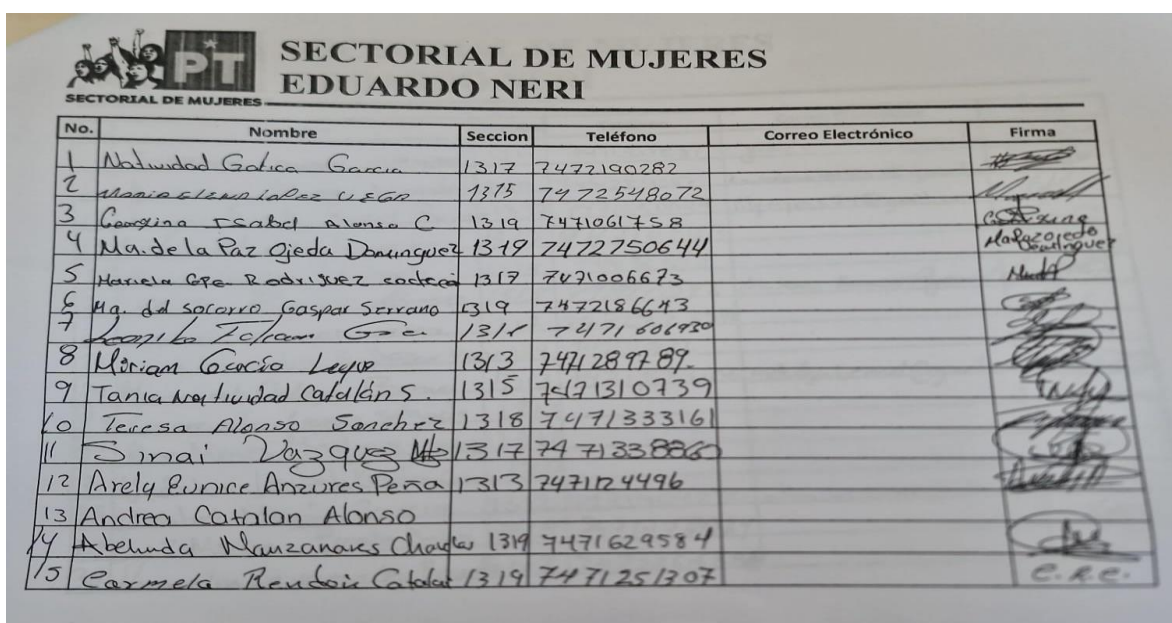 PT
SECTORIAL DE MUJERES
SECTORIAL DE MUJERES
EDUARDO NERI
No. Nombre Seccion Teléfono Correo Electrónico Firma
1 Natividad Gatica Garcia 1317 7472190282
2 Maria Elena Lopez VEGA 1315 7472548072
3 Georgina Isabel Alonso C 1319 7471061758
4 Ma. de la Paz Ojeda Dominguez 1319 7472750644 Ma Paz Ojeda Dominguez
5 Mariela Gpe. Rodriguez 1317 7471006673
6 Ma. del socorro Gaspar Serrano 1319 7472186643
7 7471606930
8 Miriam García Leyva 1313 7471289789.
9 Tania Natividad Catalán S. 1315 7471310739
10 Teresa Alonso Sanchez 1318 7471333161
11 Sinai Vazquez 1317 7471338860
12 Arely Eunice Anzures Peña 1313 7471124496
13 Andrea Catalan Alonso
14 Abelinda Manzanares 1319 7471629584
15 Carmela Rendoin Catalan 1319 7471251307 C.R.C.